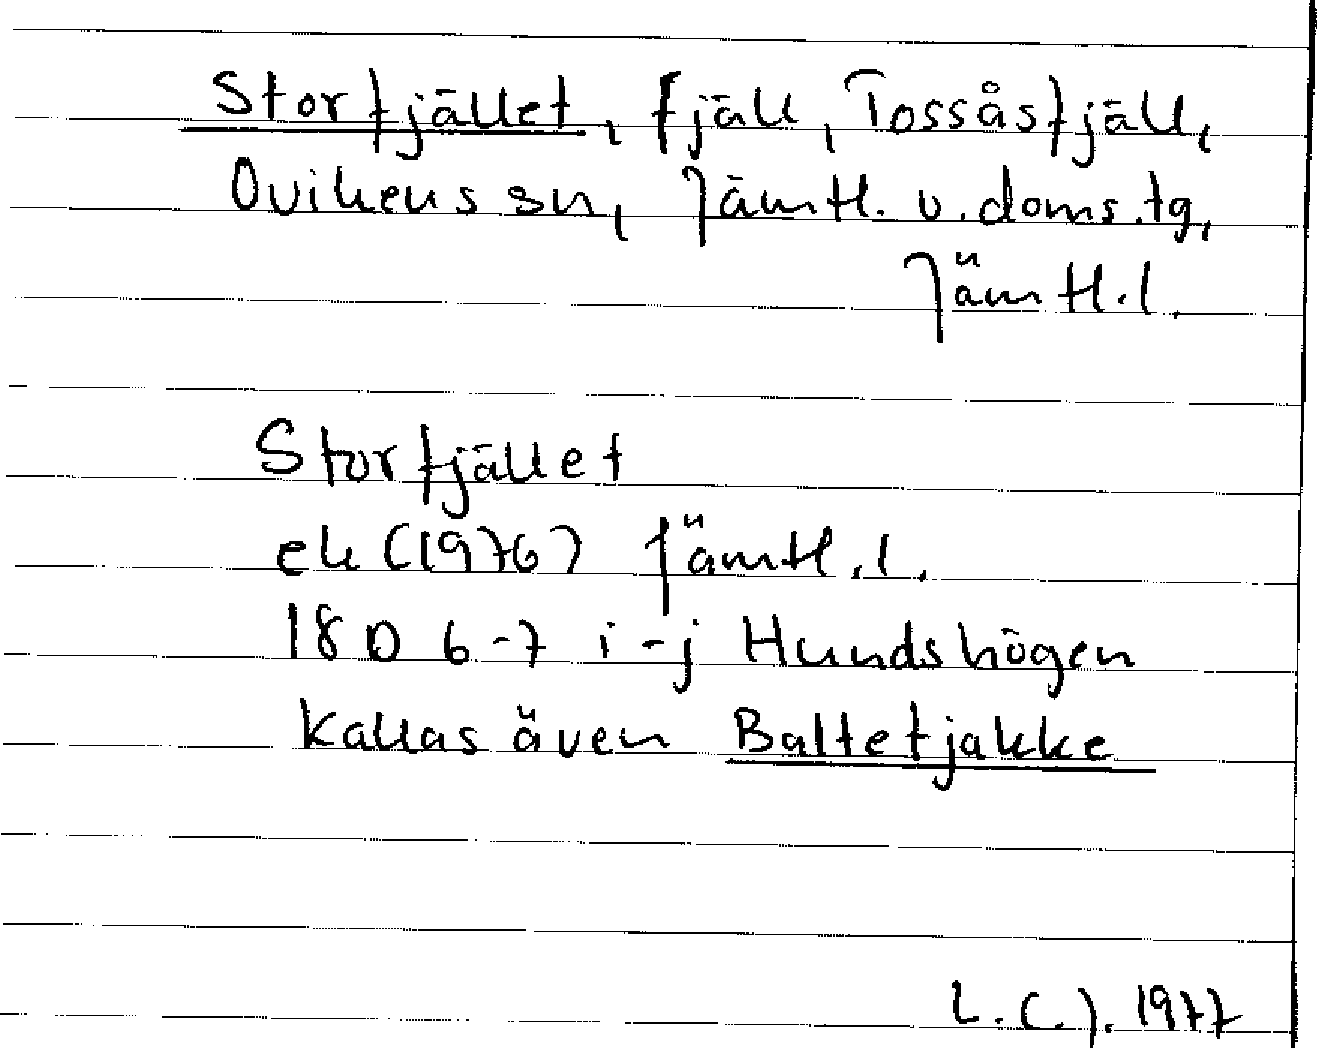 Storfjället, fjäll, Tossåsfjäll,
Ovikens sn, Jämtl. v. doms.tg,
Jämtl.l.
Storfjället
ek (1976) Jämtl.l.
18D 6-7 i-j Hundshögen
kallas även Baltetjakke
L.C.J. 1977